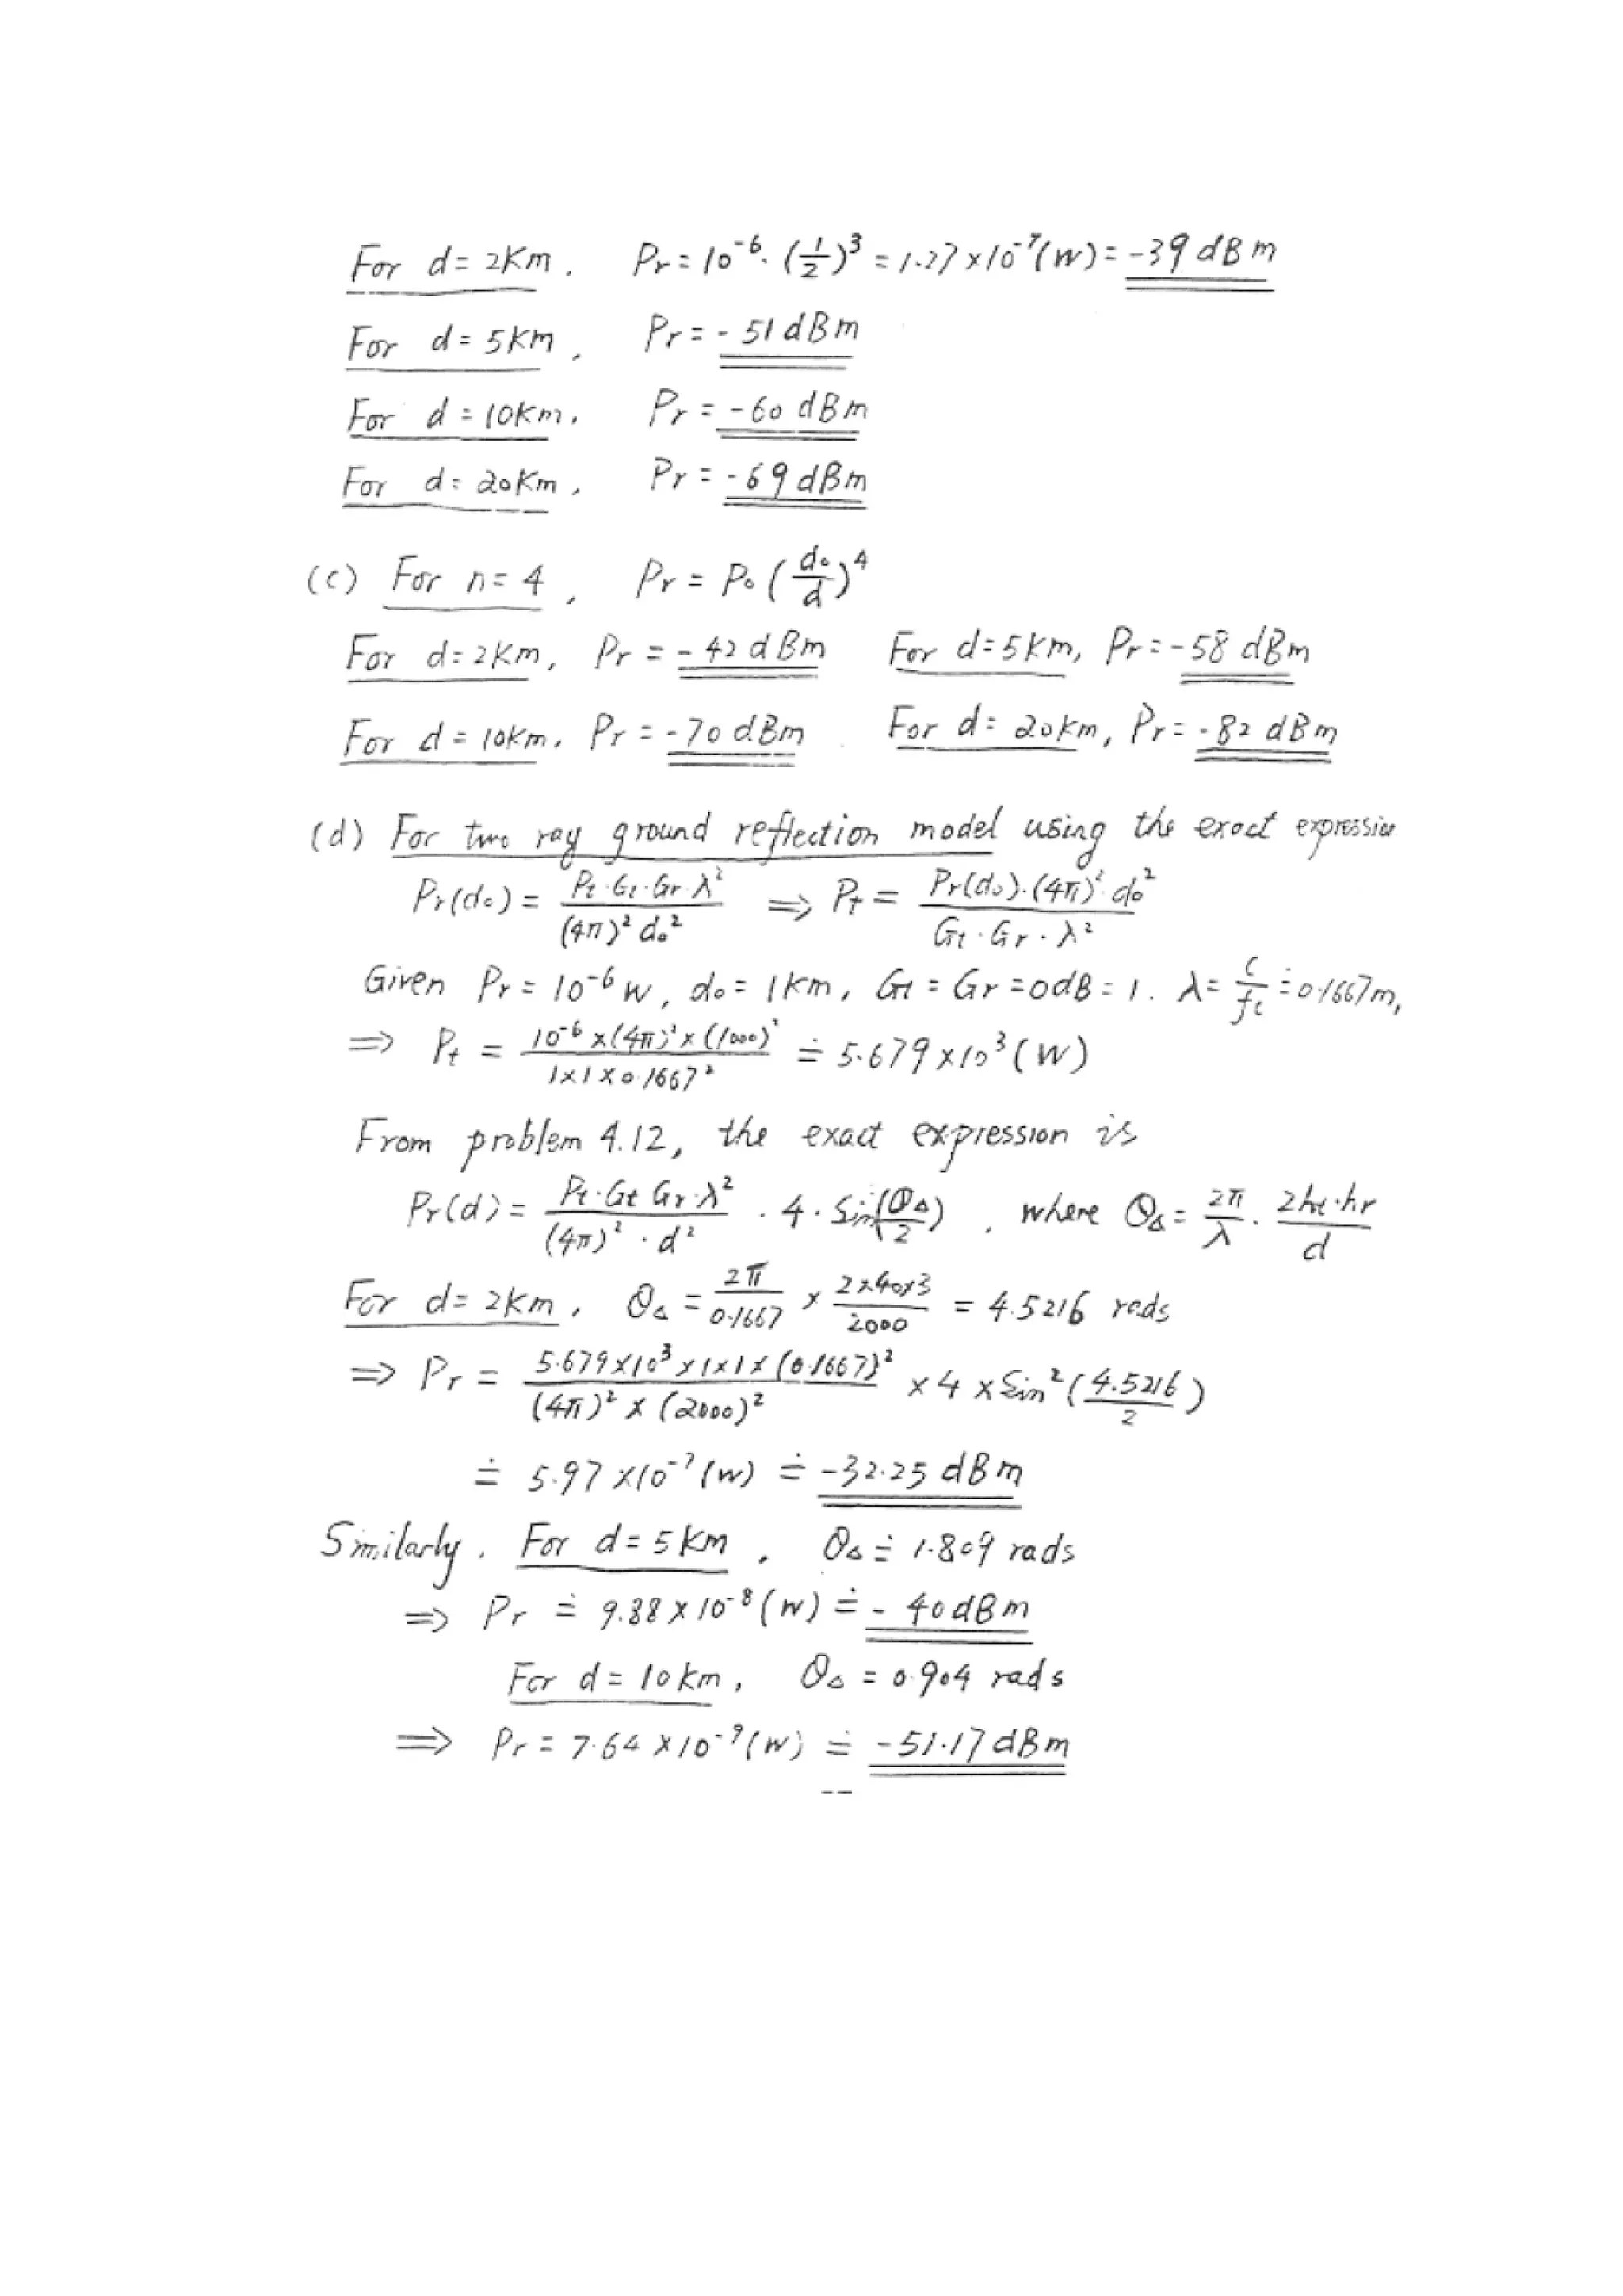 For d = 2Km. Pr = 10^-6 · (1/2)^3 = 1.27 x 10^-7 (W) = -39 dBm
For d = 5Km, Pr = - 51 dBm
For d = 10Km, Pr = -60 dBm
For d = 20Km, Pr = -69 dBm
(c) For n = 4, Pr = P0 (d0/d)^4
For d = 2Km, Pr = -42 dBm For d = 5Km, Pr = -58 dBm
For d = 10Km, Pr = -70 dBm For d = 20Km, Pr = -82 dBm
(d) For two ray ground reflection model using the exact expression
Pr(d0) = Pt·Gt·Gr·λ^2 / (4π)^2 d0^2 ⇒ Pt = Pr(d0)·(4π)^2·d0^2 / Gt·Gr·λ^2
Given Pr = 10^-6 W, d0 = 1Km, Gt = Gr = 0dB = 1. λ = c/fc ≐ 0.1667m,
⇒ Pt = 10^-6 x (4π)^2 x (1000)^2 / 1x1x0.1667^2 ≐ 5.679 x 10^3 (W)
From problem 4.12, the exact expression is
Pr(d) = Pt·Gt Gr·λ^2 / (4π)^2 · d^2 · 4 · Sin(θΔ/2), where θΔ = 2π/λ · 2ht·hr/d
For d = 2Km, θΔ = 2π/0.1667 x 2x40x3/2000 = 4.5216 rads
⇒ Pr = 5.679x10^3 x1x1x (0.1667)^2 / (4π)^2 x (2000)^2 x 4 x Sin^2(4.5216/2)
≐ 5.97 x10^-7 (W) ≐ -32.25 dBm
Similarly. For d = 5Km, θΔ ≐ 1.809 rads
⇒ Pr ≐ 9.88 x 10^-8 (W) ≐ - 40dBm
For d = 10Km, θΔ = 0.904 rads
⇒ Pr = 7.64 x 10^-9 (W) ≐ -51.17 dBm